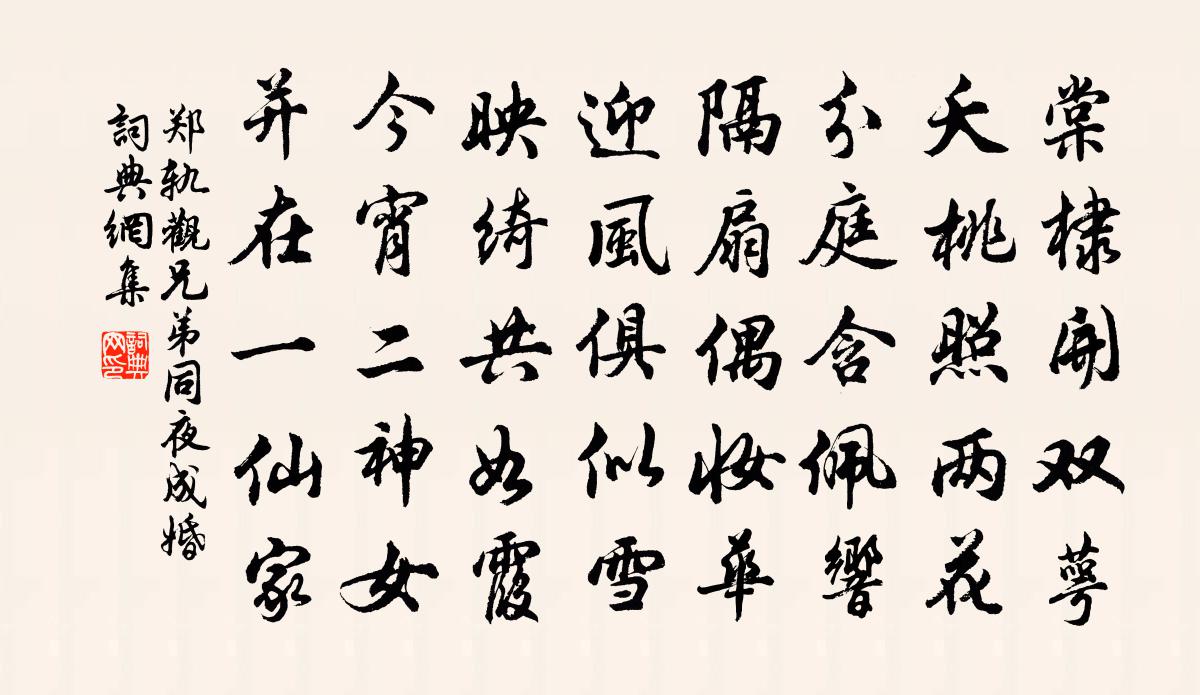 棠棣开双萼
夭桃照两花
分庭含佩響
隔扇偶妆華
迎風俱似雪
映绮共如霞
今宵二神女
并在一仙家
郑轨觀兄弟同夜成婚
詞典網集
詞典网印